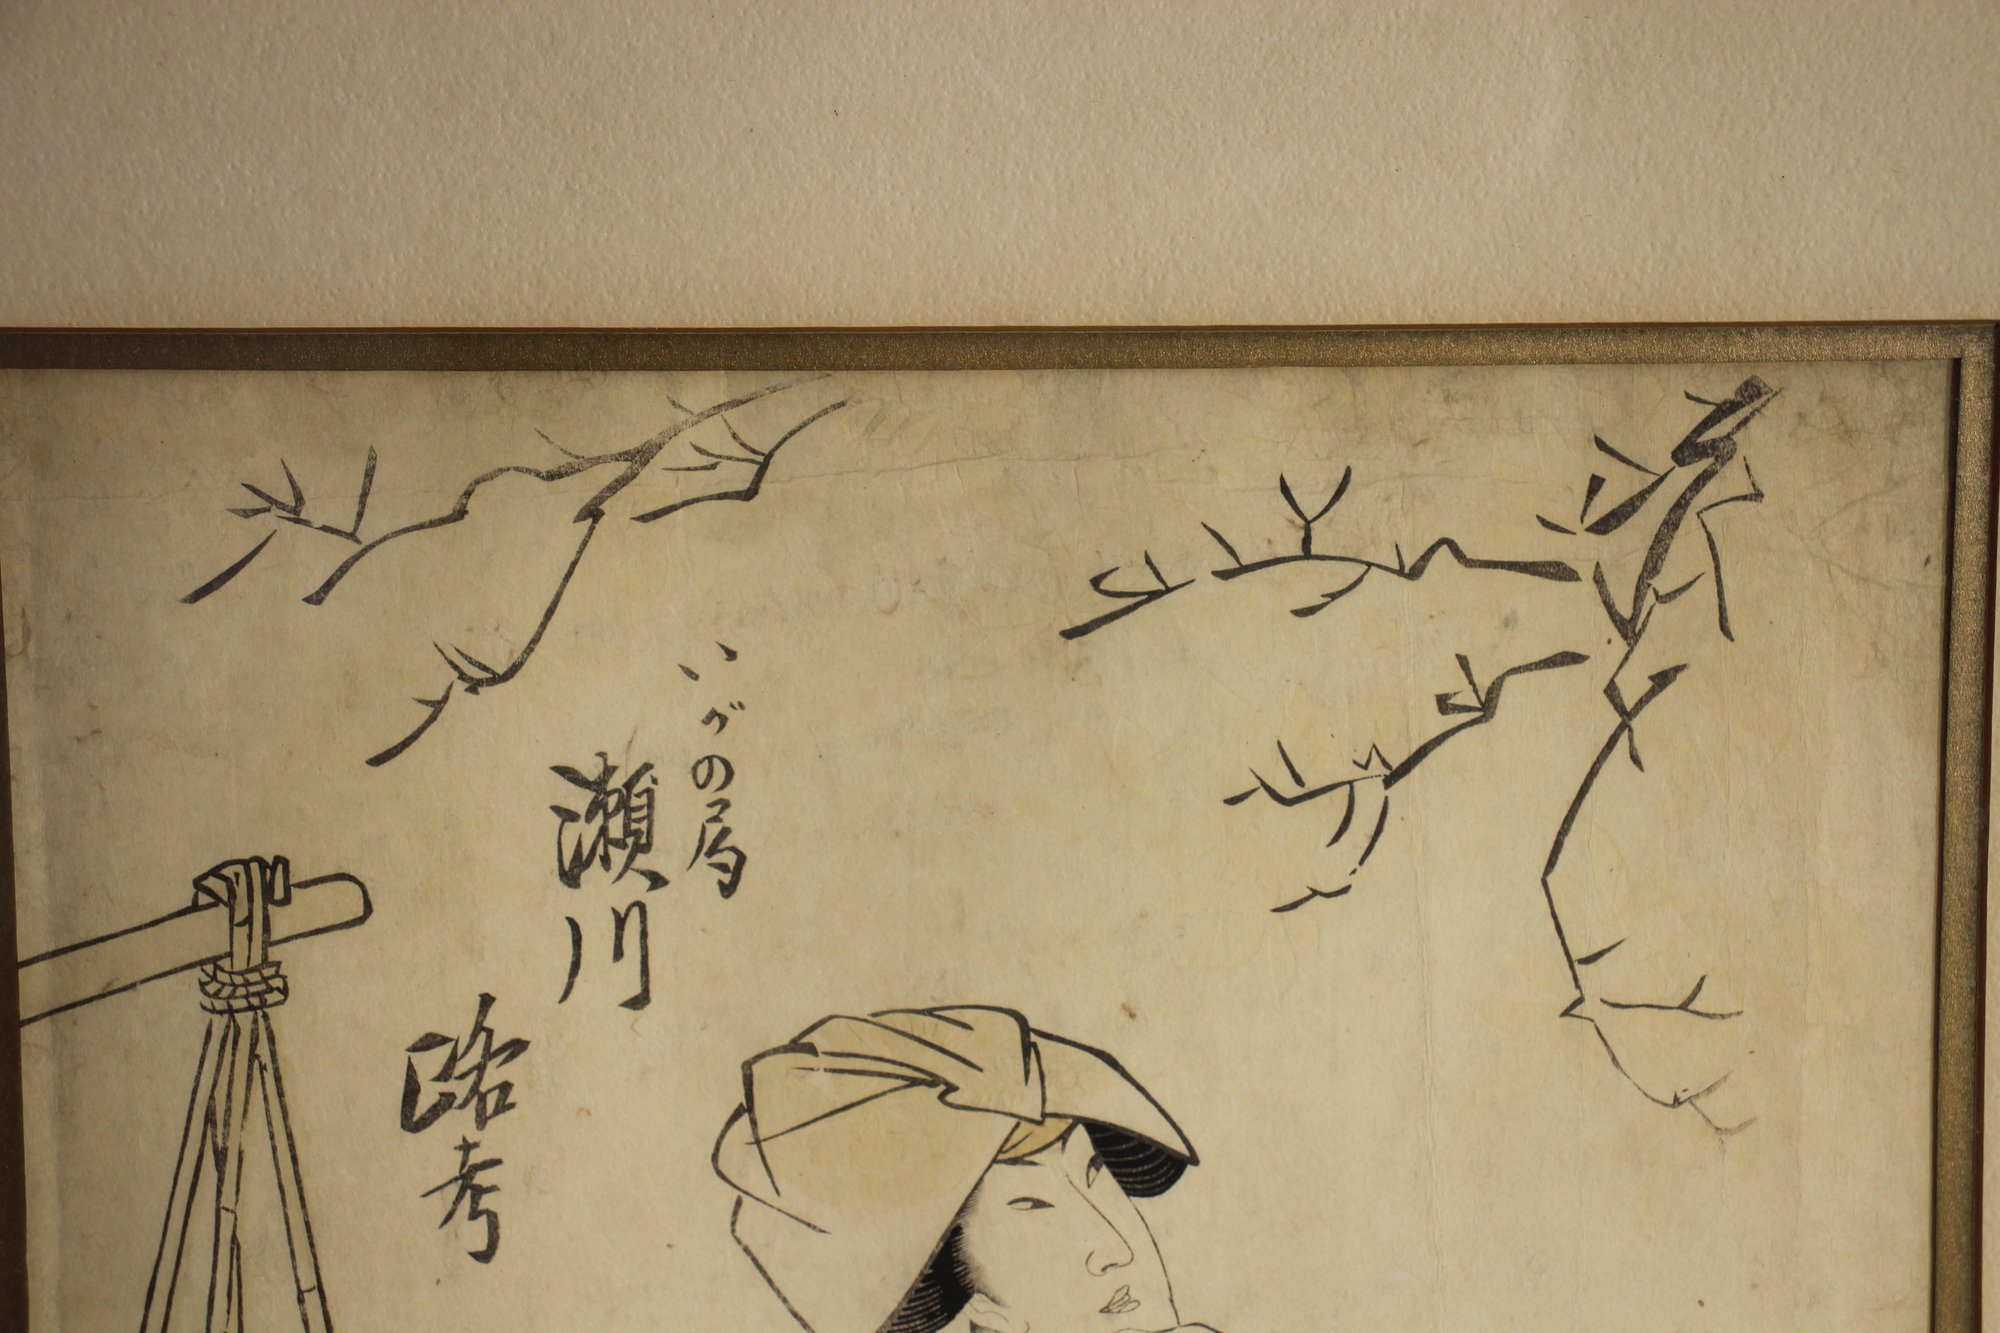 いがの局
瀬川
路考